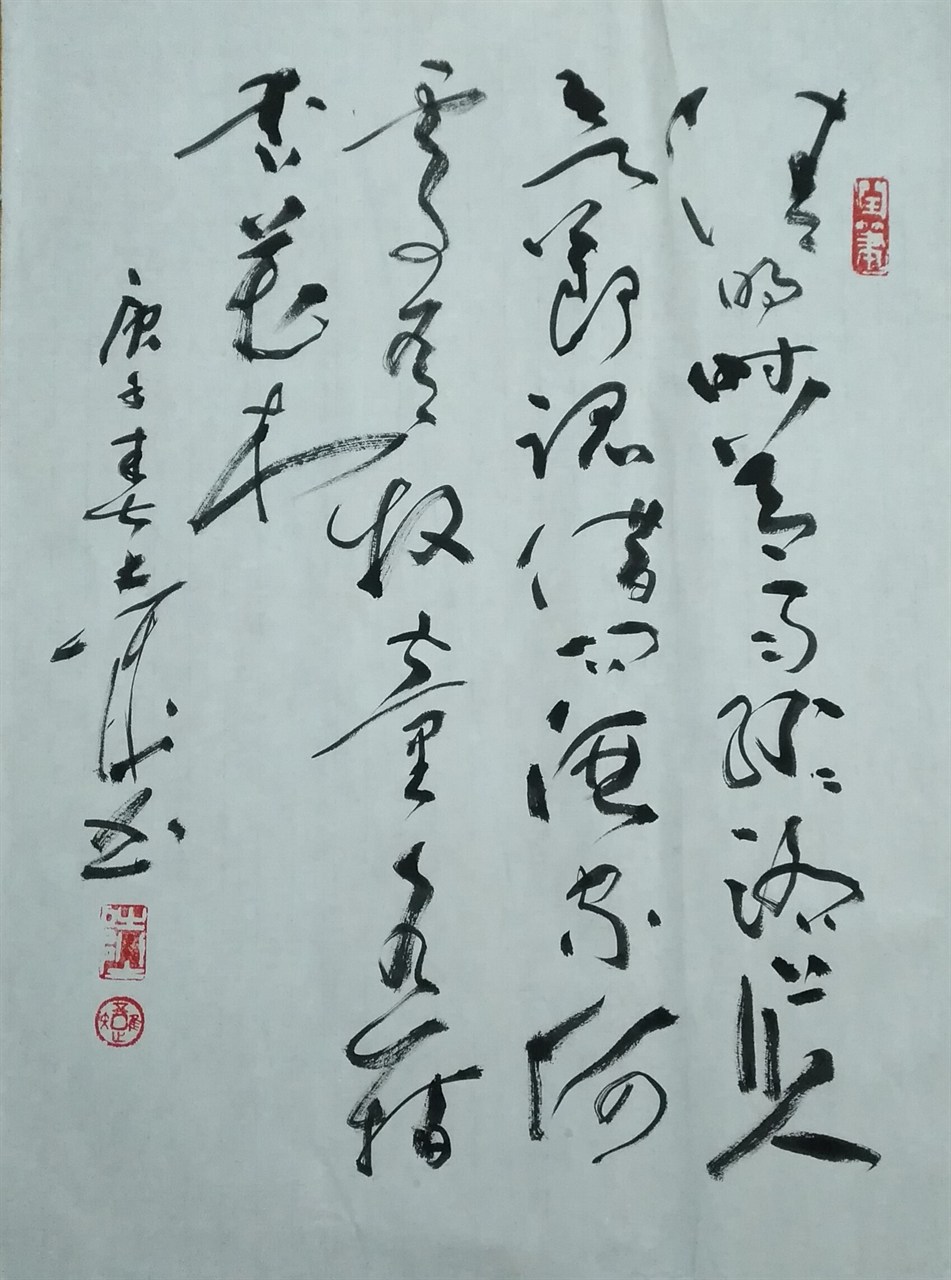 清明时節雨纷〻路上行人
欲断魂借问酒家何
處有牧童遥指
杏花村
庚子春书